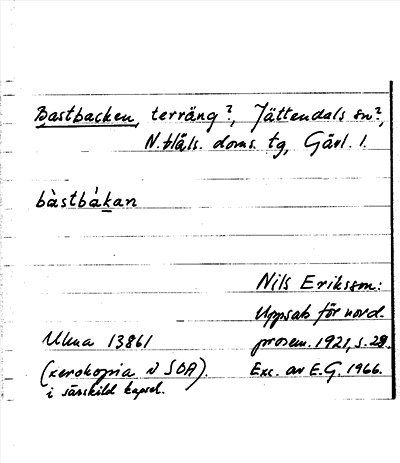 Bastbacken, terräng?, Jättendals sn?,
N. Häls. doms. tg, Gävl. l.
bàstbákan
Nils Eriksson:
Uppsats för nord.
Ulma 13861
prosem. 1921, s. 28.
(xerokopia i SOA).
Exc. av E.G. 1966.
i särskild kapsel.